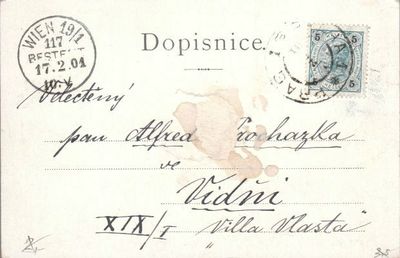 WIEN 19/1
117
BESTELLT
17.2.01
10.V
Dopisnice.
5 5
5 5
PRAG
Velectěný
pan Alfred Prochazka
ve
Vídni
XIX/I "Villa Vlasta"